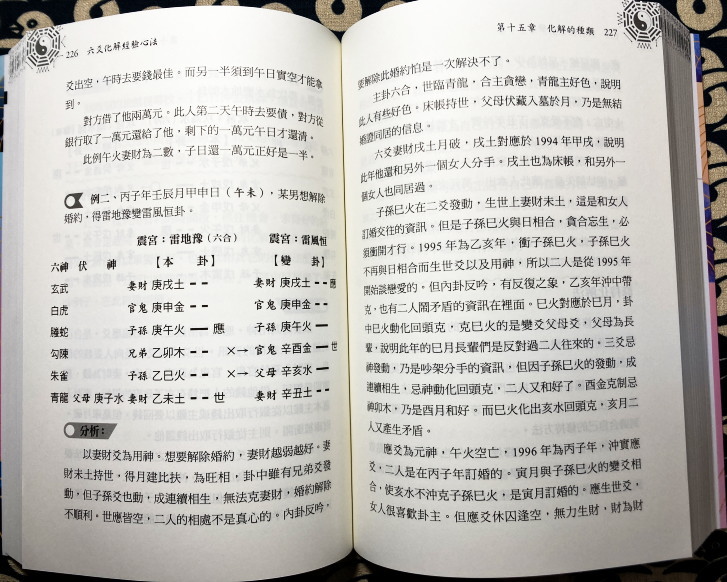 226 六爻化解經驗心法
爻出空，午時去要錢最佳。而另一半須到午日實空才能拿
到。
對方借了他兩萬元。此人第二天午時去要債，對方從
銀行取了一萬元還給了他，剩下的一萬元午日才還清。
此例午火妻財為二數，子日還一萬元正好是一半。
例二、丙子年壬辰月甲申日（午未），某男想解除
婚約，得雷地豫變雷風恒卦。
震宮：雷地豫（六合） 震宮：雷風恒
六神 伏 神 【本 卦】 【變 卦】
玄武 妻財 庚戌土 妻財 庚戌土 應
白虎 官鬼 庚申金 官鬼 庚申金
螣蛇 子孫 庚午火 應 子孫 庚午火
勾陳 兄弟 乙卯木 ×→ 官鬼 辛酉金 世
朱雀 子孫 乙巳火 ×→ 父母 辛亥水
青龍 父母 庚子水 妻財 乙未土 世 妻財 辛丑土
分析：
以妻財爻為用神。想要解除婚約，妻財越弱越好。妻
財未土持世，得月建比扶，為旺相，卦中雖有兄弟爻發
動，但子孫爻也動，成連續相生，無法克妻財，婚約解除
不順利。世應皆空，二人的相處不是真心的。內卦反吟，
第十五章 化解的種類 227
要解除此婚約怕是一次解決不了。
主卦六合，世臨青龍，合主貪戀，青龍主好色，說明
此人有些好色。床帳持世，父母伏藏入墓於月，乃是無結
婚證同居的信息。
六爻妻財戌土月破，戌土對應於 1994 年甲戌，說明
此年他還和另外一個女人分手。戌土也為床帳，和另外一
個女人也同居過。
子孫巳火在二爻發動，生世上妻財未土，這是和女人
訂婚交往的資訊。但是子孫巳火與日相合，貪合忘生，必
須衝開才行。1995 年為乙亥年，衝子孫巳火，子孫巳火
不再與日相合而生世爻以及用神，所以二人是從 1995 年
開始談戀愛的，但內卦反吟，有反復之象，乙亥年沖中帶
克，也有二人鬧矛盾的資訊在裡面。巳火對應於巳月，卦
中巳火動化回頭克，克巳火的是變爻父母爻，父母為長
輩，說明此年的巳月長輩們是反對過二人往來的。三爻忌
神發動，乃是吵架分手的資訊，但因子孫巳火的發動，成
連續相生，忌神動化回頭克，二人又和好了。酉金克制忌
神卯木，乃是酉月和好。而巳火化出亥水回頭克，亥月二
人又產生矛盾。
應爻為元神，午火空亡，1996 年為丙子年，沖實應
爻，二人是在丙子年訂婚的。寅月與子孫巳火的變爻相
合，使亥水不沖克子孫巳火，是寅月訂婚的。應生世爻，
女人很喜歡卦主。但應爻休囚逢空，無力生財，財為財